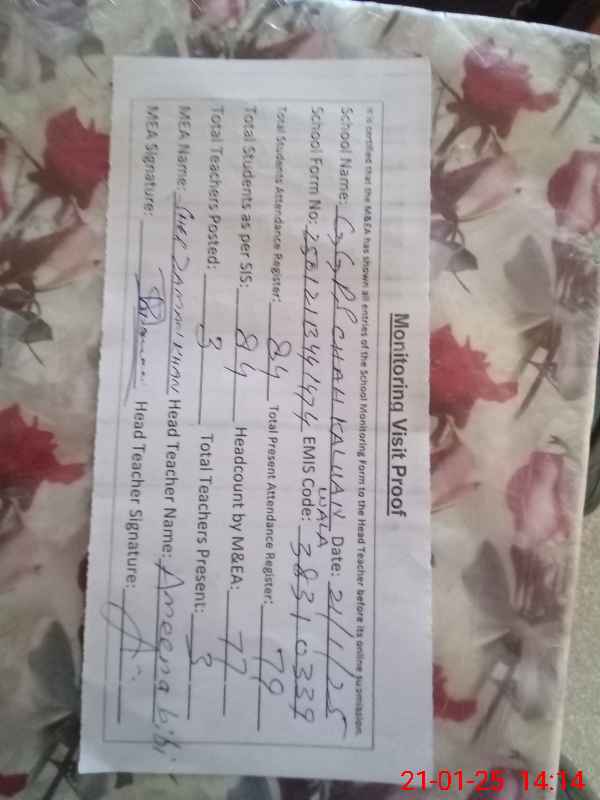 Monitoring Visit Proof
It is certified that the M&EA has shown all entries of the School Monitoring Form to the Head Teacher before its online submission.
School Name: GGPS CHAH KALUAN WALA Date: 21/1/25
School Form No: EMIS Code: 38310339
Total Students Attendance Register: 84 Total Present Attendance Register: 79
Total Students as per SIS: 84 Headcount by M&EA: 77
Total Teachers Posted: 3 Total Teachers Present: 3
MEA Name: KHAN Head Teacher Name: Ameena bibi
MEA Signature: Head Teacher Signature:
21-01-25 14:14